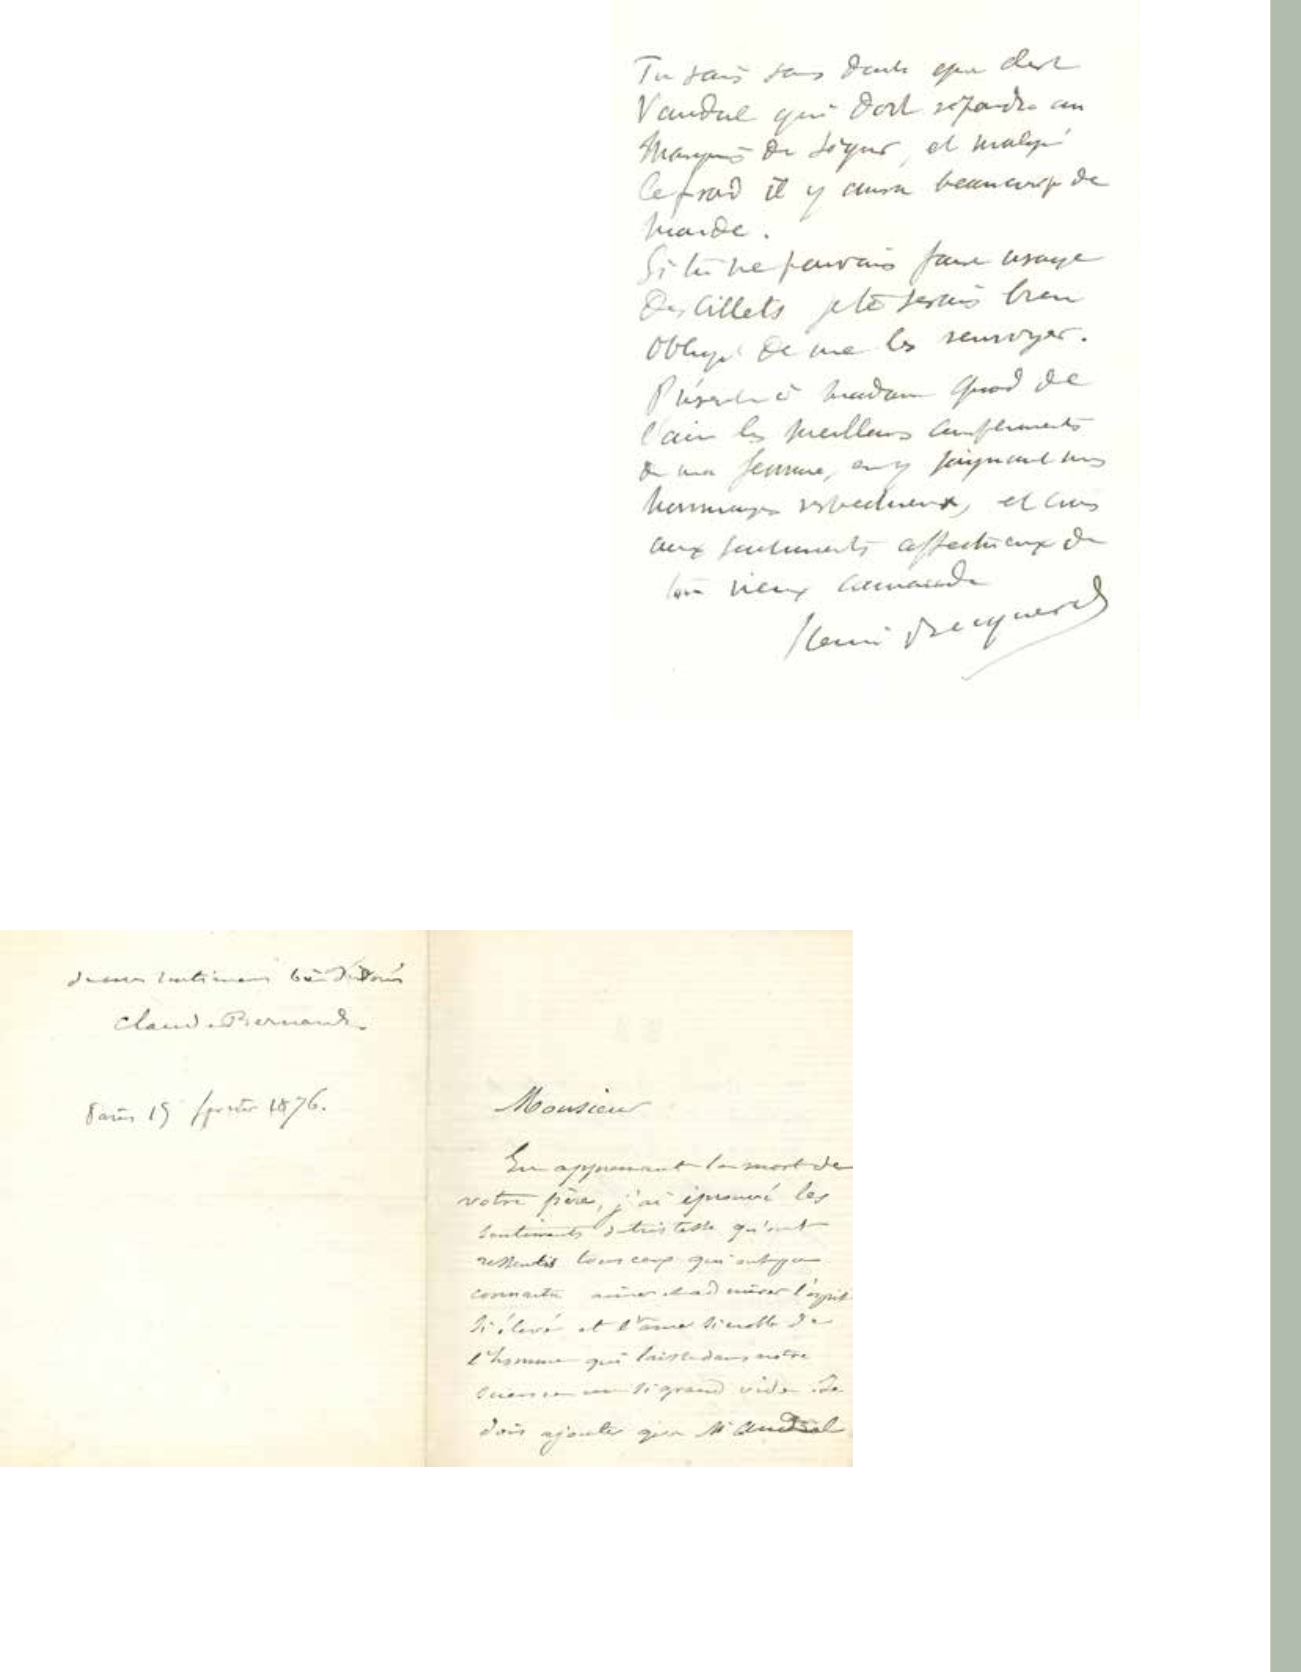 Tu sais sans doute que c'est
Vandal qui doit répondre au
Marquis de Ségur, et malgré
le froid il y aura beaucoup de
monde.
Si tu ne pouvais faire usage
des billets je te serais bien
obligé de me les renvoyer.
Présente à Madame
les meilleurs compliments
de ma femme, en y joignant mes
hommages respectueux, et crois
aux sentiments affectueux de
ton vieux camarade
Henri Becquerel
de mes sentimens
Claude Bernard.
Paris 15 février 1876.
Monsieur
En apprenant la mort de
votre père, j'ai éprouvé les
sentiments de tristesse qu'ont
ressentis tous ceux qui ont pu
connaitre aimer et admirer l'esprit
si élevé et l'âme si noble de
l'homme qui laisse dans notre
science un si grand vide. Je
dois ajouter que Mr Andral